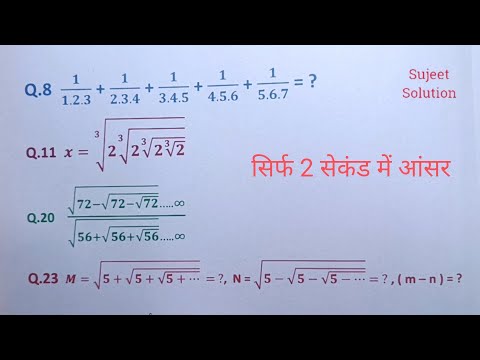 Q.8 1/1.2.3 + 1/2.3.4 + 1/3.4.5 + 1/4.5.6 + 1/5.6.7 = ?
Sujeet
Solution
Q.11 x = ∛(2∛(2∛(2∛2)))
सिर्फ 2 सेकंड में आंसर
Q.20 √(72−√(72−√72)).....∞ / √(56+√(56+√56)).....∞
Q.23 M = √(5 + √(5 + √(5 + ⋯))) = ?, N = √(5 − √(5 − √(5 − ⋯))) = ? , ( m – n ) = ?